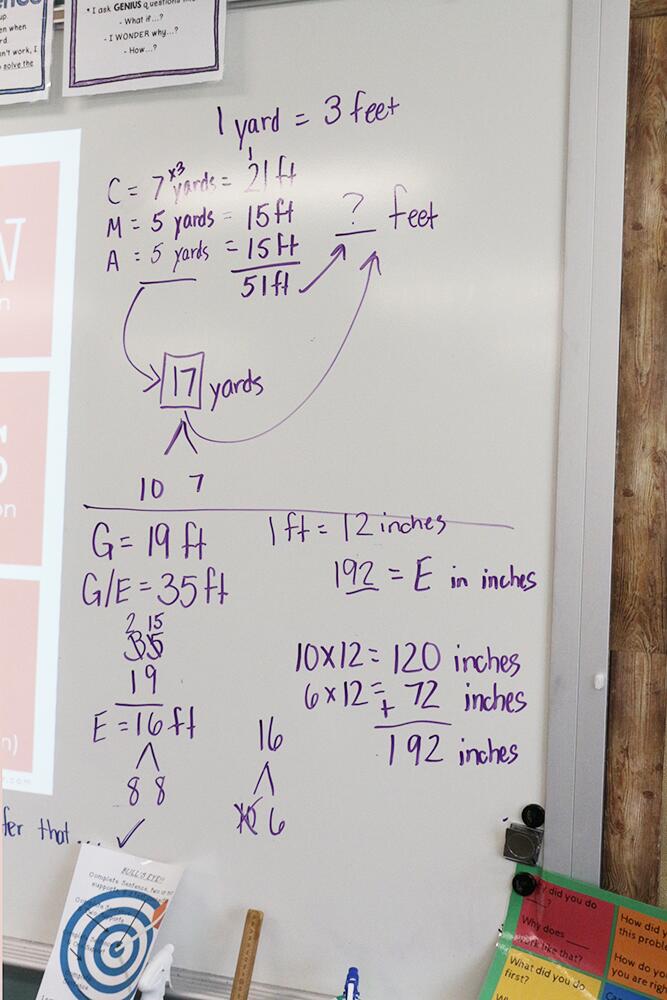 * I ask GENIUS questions
- What if...?
- I WONDER why...?
- How...?
up
en when
rd.
n't work, I
solve the
1 yard = 3 feet
1
C = 7 x3 yards = 21 ft
M = 5 yards = 15 ft
A = 5 yards = 15 ft
51 ft
? feet
17 yards
10 7
G = 19 ft
G/E = 35 ft
2 15
35
19
E = 16 ft
8 8
1 ft = 12 inches
192 = E in inches
10 x 12 = 120 inches
6 x 12 = + 72 inches
192 inches
16
10 6
W
n
S
on
n)
.com
fer that...
BULL'S EYE!!
Complete Sentence, two
supports
Complete
Sentence
Complete
Sentence
? did you do
?
Why does
work like that?
What did you do
first?
How did y
this proble
How do yo
you are righ